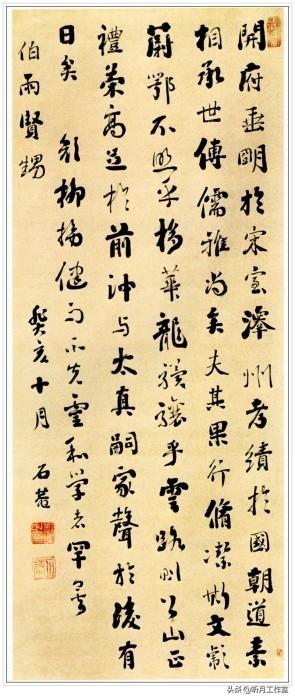 開府垂明於宋室澤州考績於國朝道素
相承世傳儒雅尚矣夫其果行脩潔斯文彪
蔚鄂不照乎棣華龍驤乎雲路則公山正
禮策高足於前沖与太真嗣家聲於後有
日矣 柳健而不和學者罕
伯雨賢甥
癸亥十月 石菴
头条@听月工作室